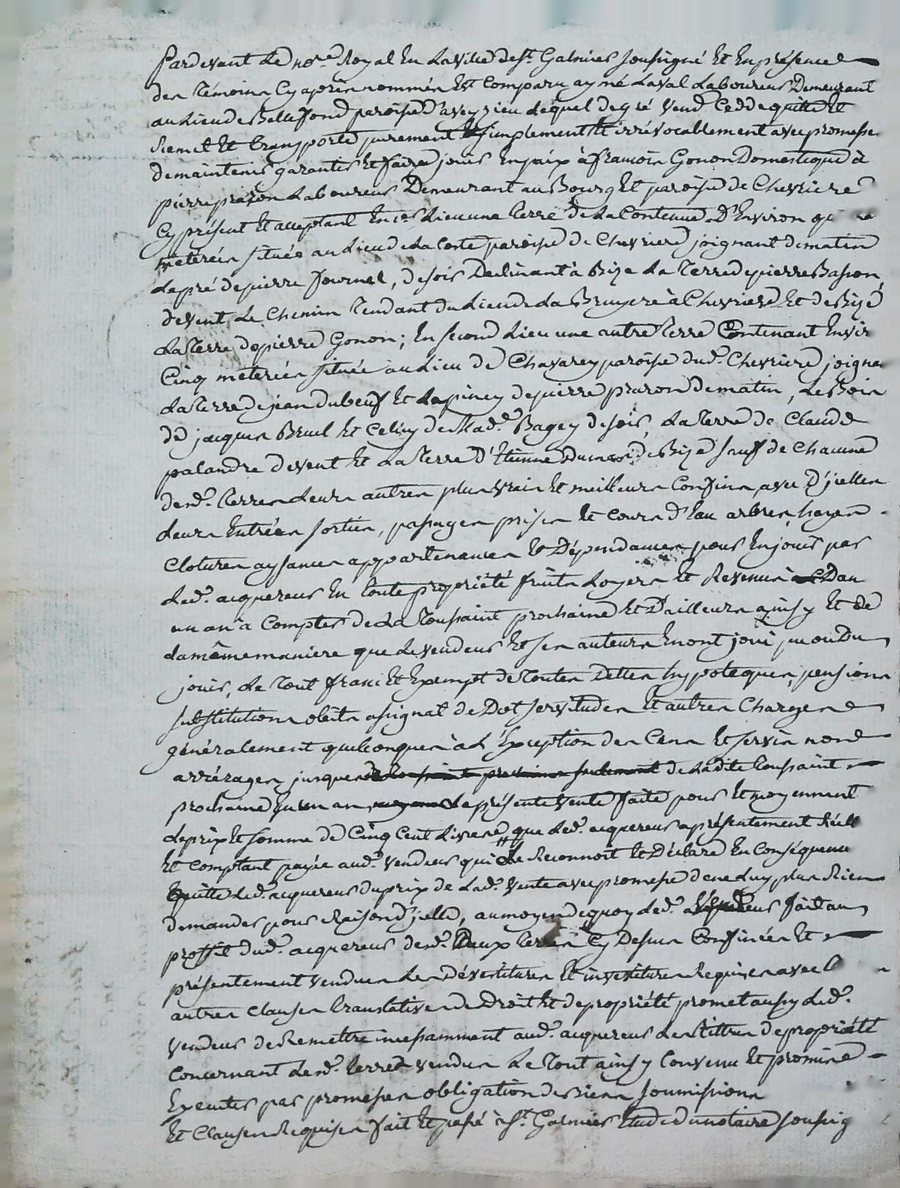 Pardevant Le no.re Royal En La ville de st. Galmier soussigné Et En présence
des Témoins Cy aprés nommés Est comparu aymé Laval Laboureur Demeurant
au Lieu de Bellefond paroisse d'aveyzieu Lequel de gré vend Cedde quitte Et
Remet Et transporte purement Et simplement Et irrévocablement avec promesse
de maintenir garantir Et faire jouir En paix à francois Gonon Domestique à
pierre prazon Laboureur Demeurant au Bourg Et paroisse de Chevrieres
Cy présent Et acceptant En 1er Lieu une terre de La Contenue D'Environ
meterées située au Lieu de La Coste paroisse de Chevrieres joignant de matin
Le pré de pierre fournel, de soir Declinant à Bize La Terre de pierre Basson,
de vent Le Chemin Tendant du Lieu de La Bruyere à Chevrieres Et de Bize
La Terre de pierre Gonon; En second Lieu une autre terre Contenant Envir
Cinq meterées située au Lieu de Chavarey paroisse dud. Chevrieres joigna
La Terre de jean dubeuf Et La piney de pierre prazon de matin, Le Bois
de jacques Bruil Et Celuy de Mad.e Bagey de soir, La Terre de Claude
palandre de vent Et La Terre d'Etienne de Bize sauf de Chacune
desd. terres Leurs autres plus vrais Et meilleurs Confins, avec D'jcelles
Leurs Entrées sorties, passages prises Et Cours d'Eau arbres, hayes
Clotures aysances appartenances Et Dépendances pour En jouir par
Led. acquereur En toute propriété fruits Loyers Et Revenus Dans
un an à Compter de La Toussaint prochaine Et D'ailleurs ainsy Et de
La même maniere que Le vendeur Et ses auteurs En ont joui pu ou Du
jouir, Le Tout franc Et Exempt de Toutes Dettes hypoteques, pensions
substitutions obits assignat de Dot servitudes Et autres Charges
généralement quelconques à L'Exception des Cens Et servis non
arréragés jusques de Ladite toussaint
prochaine En un an La présente vente faite pour Et moyennent
Le prix Et somme de Cinq Cent Livres que Led. acquereur a présentement Réell
Et comptant payée aud. vendeur qui Le Reconnoit Et Déclare En Conséquence
Quitte Led. acquereur du prix de Lad. vente avec promesse de ne Luy plus Rien
demander pour Raison d'jcelle, au moyen de quoy Led. fait au
proffit dud. acquereur desd. Deux terres Cy Dessus Confinées Et
présentement vendues Les Dévestitures Et investitures Requises avec
autres Clauses translatives de Droit Et de propriété promet aussy Led.
vendeur de Remettre incessamment aud. acquereur Les Tittres de propriété
Concernant Lesd. terres vendues Le Tout ainsy Convenu Et promis
Executer par promesses obligation de Biens soumissions
Et Clauses Requises fait Et passé à st. Galmier Etude du notaire soussig